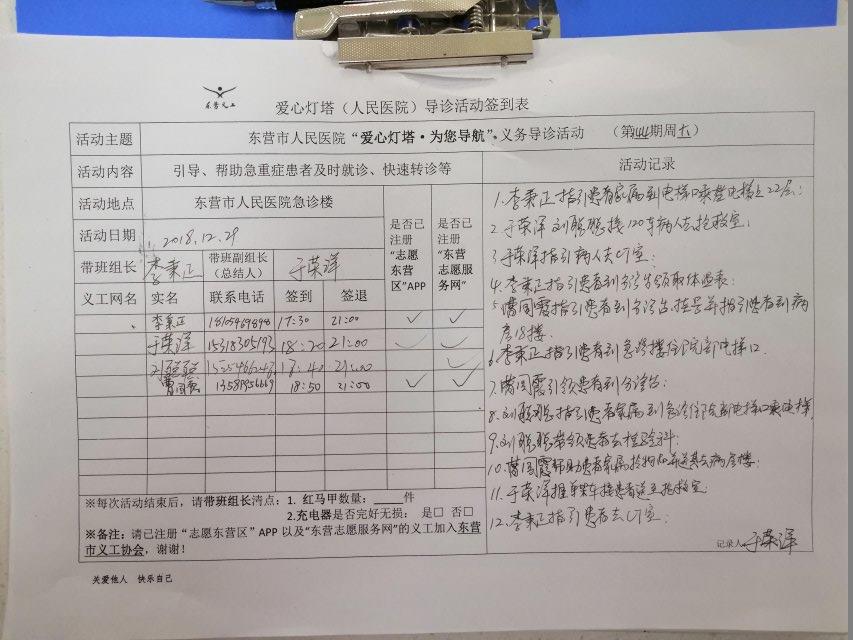 东营义工
爱心灯塔（人民医院）导诊活动签到表
活动主题 东营市人民医院“爱心灯塔·为您导航”义务导诊活动 （第444期周六）
活动内容 引导、帮助急重症患者及时就诊、快速转诊等
活动地点 东营市人民医院急诊楼
活动日期 2018.12.29
带班组长 李秉正 带班副组长（总结人） 于荣洋
是否已注册“志愿东营区”APP
是否已注册“东营志愿服务网”
义工网名 实名 联系电话 签到 签退
李秉正 17:30 21:00 ✓ ✓
于荣洋 15318305193 18:20 21:00 ✓ ✓
刘聪聪 17:40 21:00 ✓
曹国霞 13581956669 18:50 21:00 ✓ ✓
※每次活动结束后，请带班组长清点：1. 红马甲数量：____件
2.充电器是否完好无损： 是□ 否□
※备注：请已注册“志愿东营区”APP 以及“东营志愿服务网”的义工加入东营
市义工协会，谢谢！
活动记录
1.李秉正指引患者家属到电梯口乘坐电梯上22层；
2.于荣洋刘聪聪接120车病人去抢救室；
3.于荣洋指引病人去CT室；
4.李秉正指引患者到分诊台领取体温表；
5.曹国霞指引患者到分诊台挂号并指引患者到病
房18楼.
6.李秉正指引患者到急诊楼住院部电梯口
7.曹国霞引领患者到分诊台；
8.刘聪聪指引患者家属到急诊住院部电梯口乘电梯
9.刘聪聪带领患者去检验科；
10.曹国霞帮助患者家属拾物并送其去病房楼；
11.于荣洋推单架车接患者送至抢救室；
12.李秉正指引患者去CT室；
记录人 于荣洋
关爱他人 快乐自己